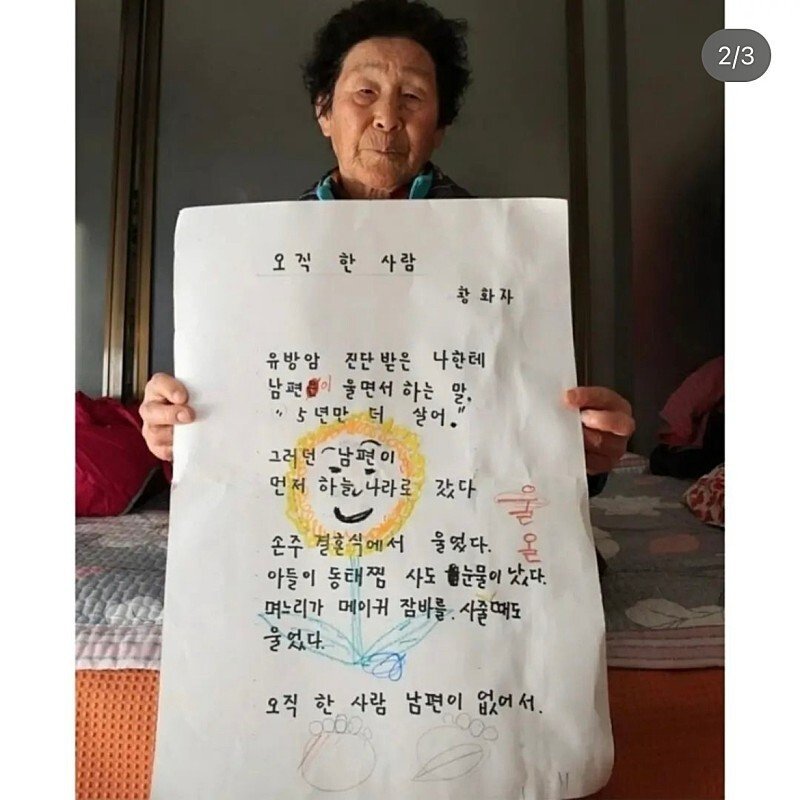 2/3
오직 한 사람
황화자
유방암 진단받은 나한테
남편이 울면서 하는 말,
"5년만 더 살어."
그러던 남편이
먼저 하늘나라로 갔다
손주 결혼식에서 울었다.
아들이 동태찜 사도 눈물이 났다.
며느리가 메이커 잠바를 사줄때도
울었다.
오직 한 사람 남편이 없어서.